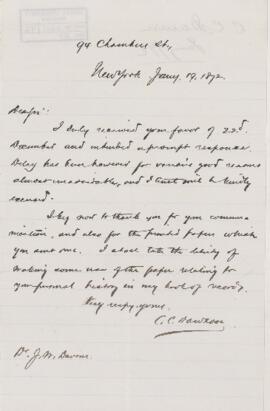 94 Chambers St,
New York Jany. 19. 1892.
Dear Sir:
I duly received your favor of 22d
December and intended a prompt response.
Delay has been however for various good reasons
almost unavoidable, and I trust will be kindly
excused.
I beg now to thank you for your commu-
nication, and also for the printed papers which
you sent me. I shall take the liberty of
making some use of the paper relating to
your personal history in my book of records.
Very respy. yours.
C. C. Dawson
Dr. J. W. Dawson.